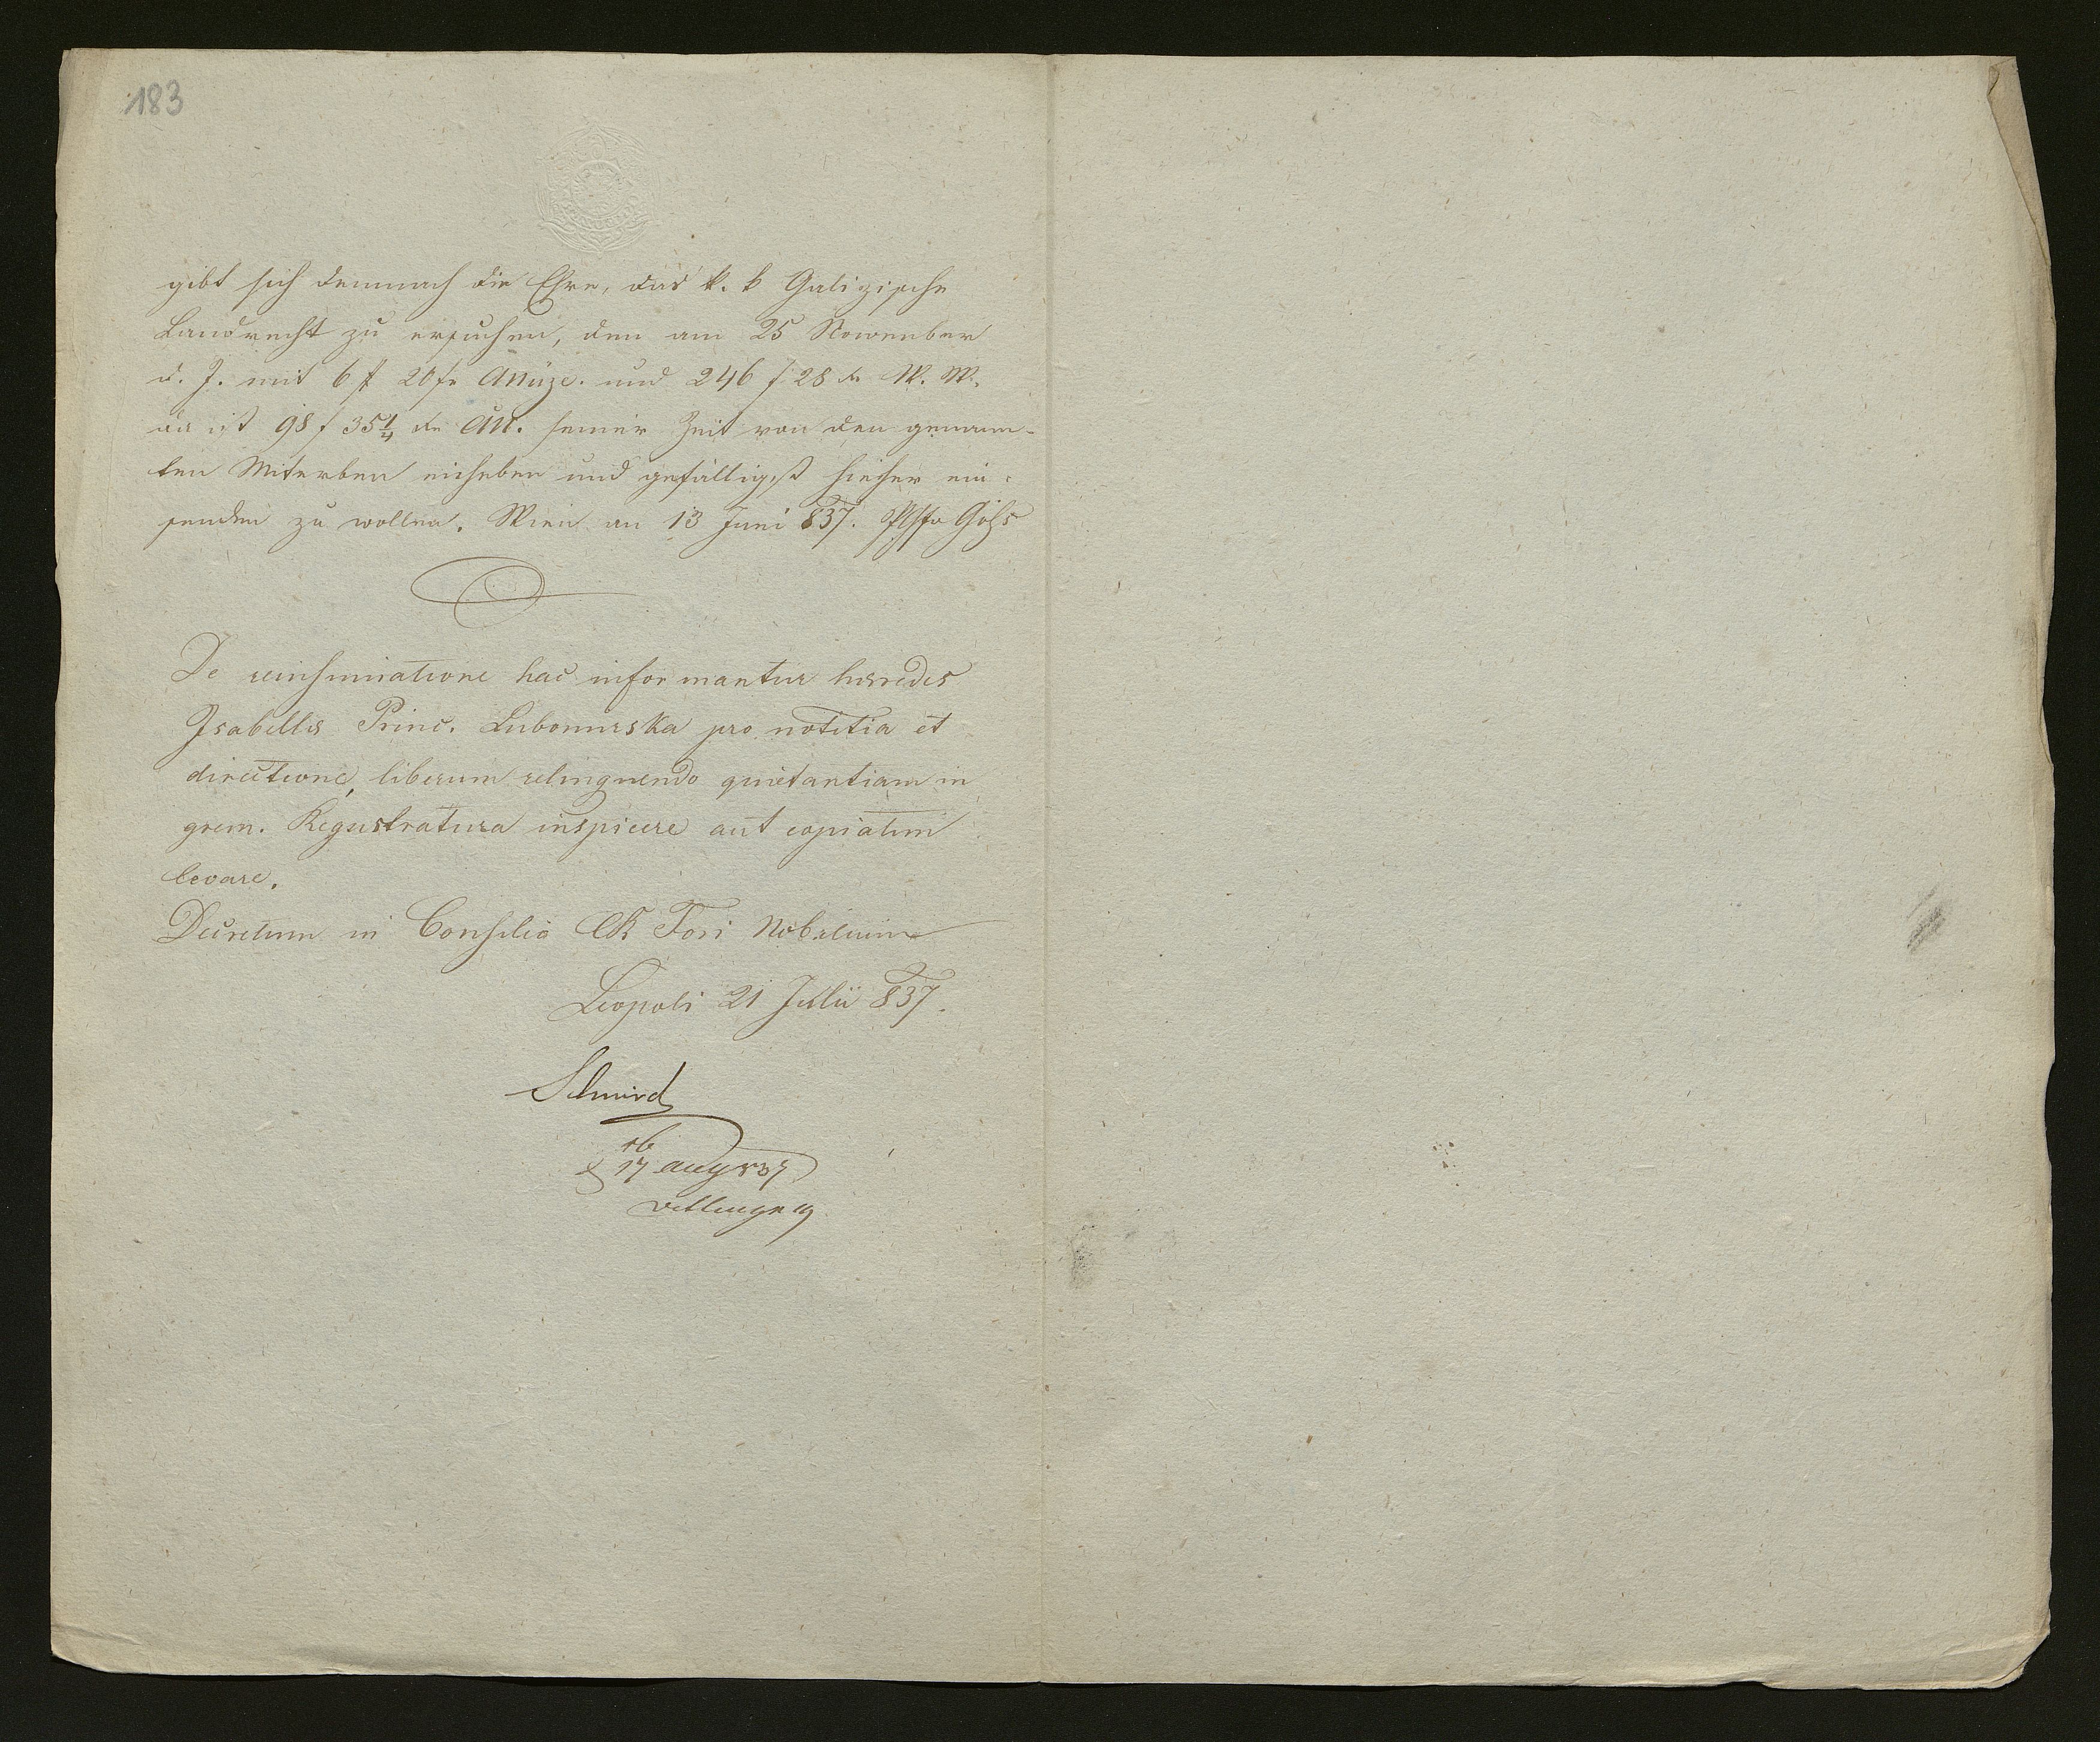 183
gibt sich demnach die Ehre, das k. k Galizische
Landrecht zu ersuchen, den am 25 November
d. J. mit 6 f 20 und 246 f 28 W. W.
98 f 35 1/4 seiner Zeit von den genann-
ten Miterben einheben und gefälligst hieher ein-
senden zu wollen. Wien am 13 Juni 837.
De hac informantur heredes
Isabellis Princ. Lubomirska pro notitia et
directione, liberum relinquendo quietantiam in
grem. Registratura inspicere aut copiatim
levare.
Decretum in Consilio CR Fori Nobilium
Leopoli 21 Julii 837.
Schmid
17 aug 837